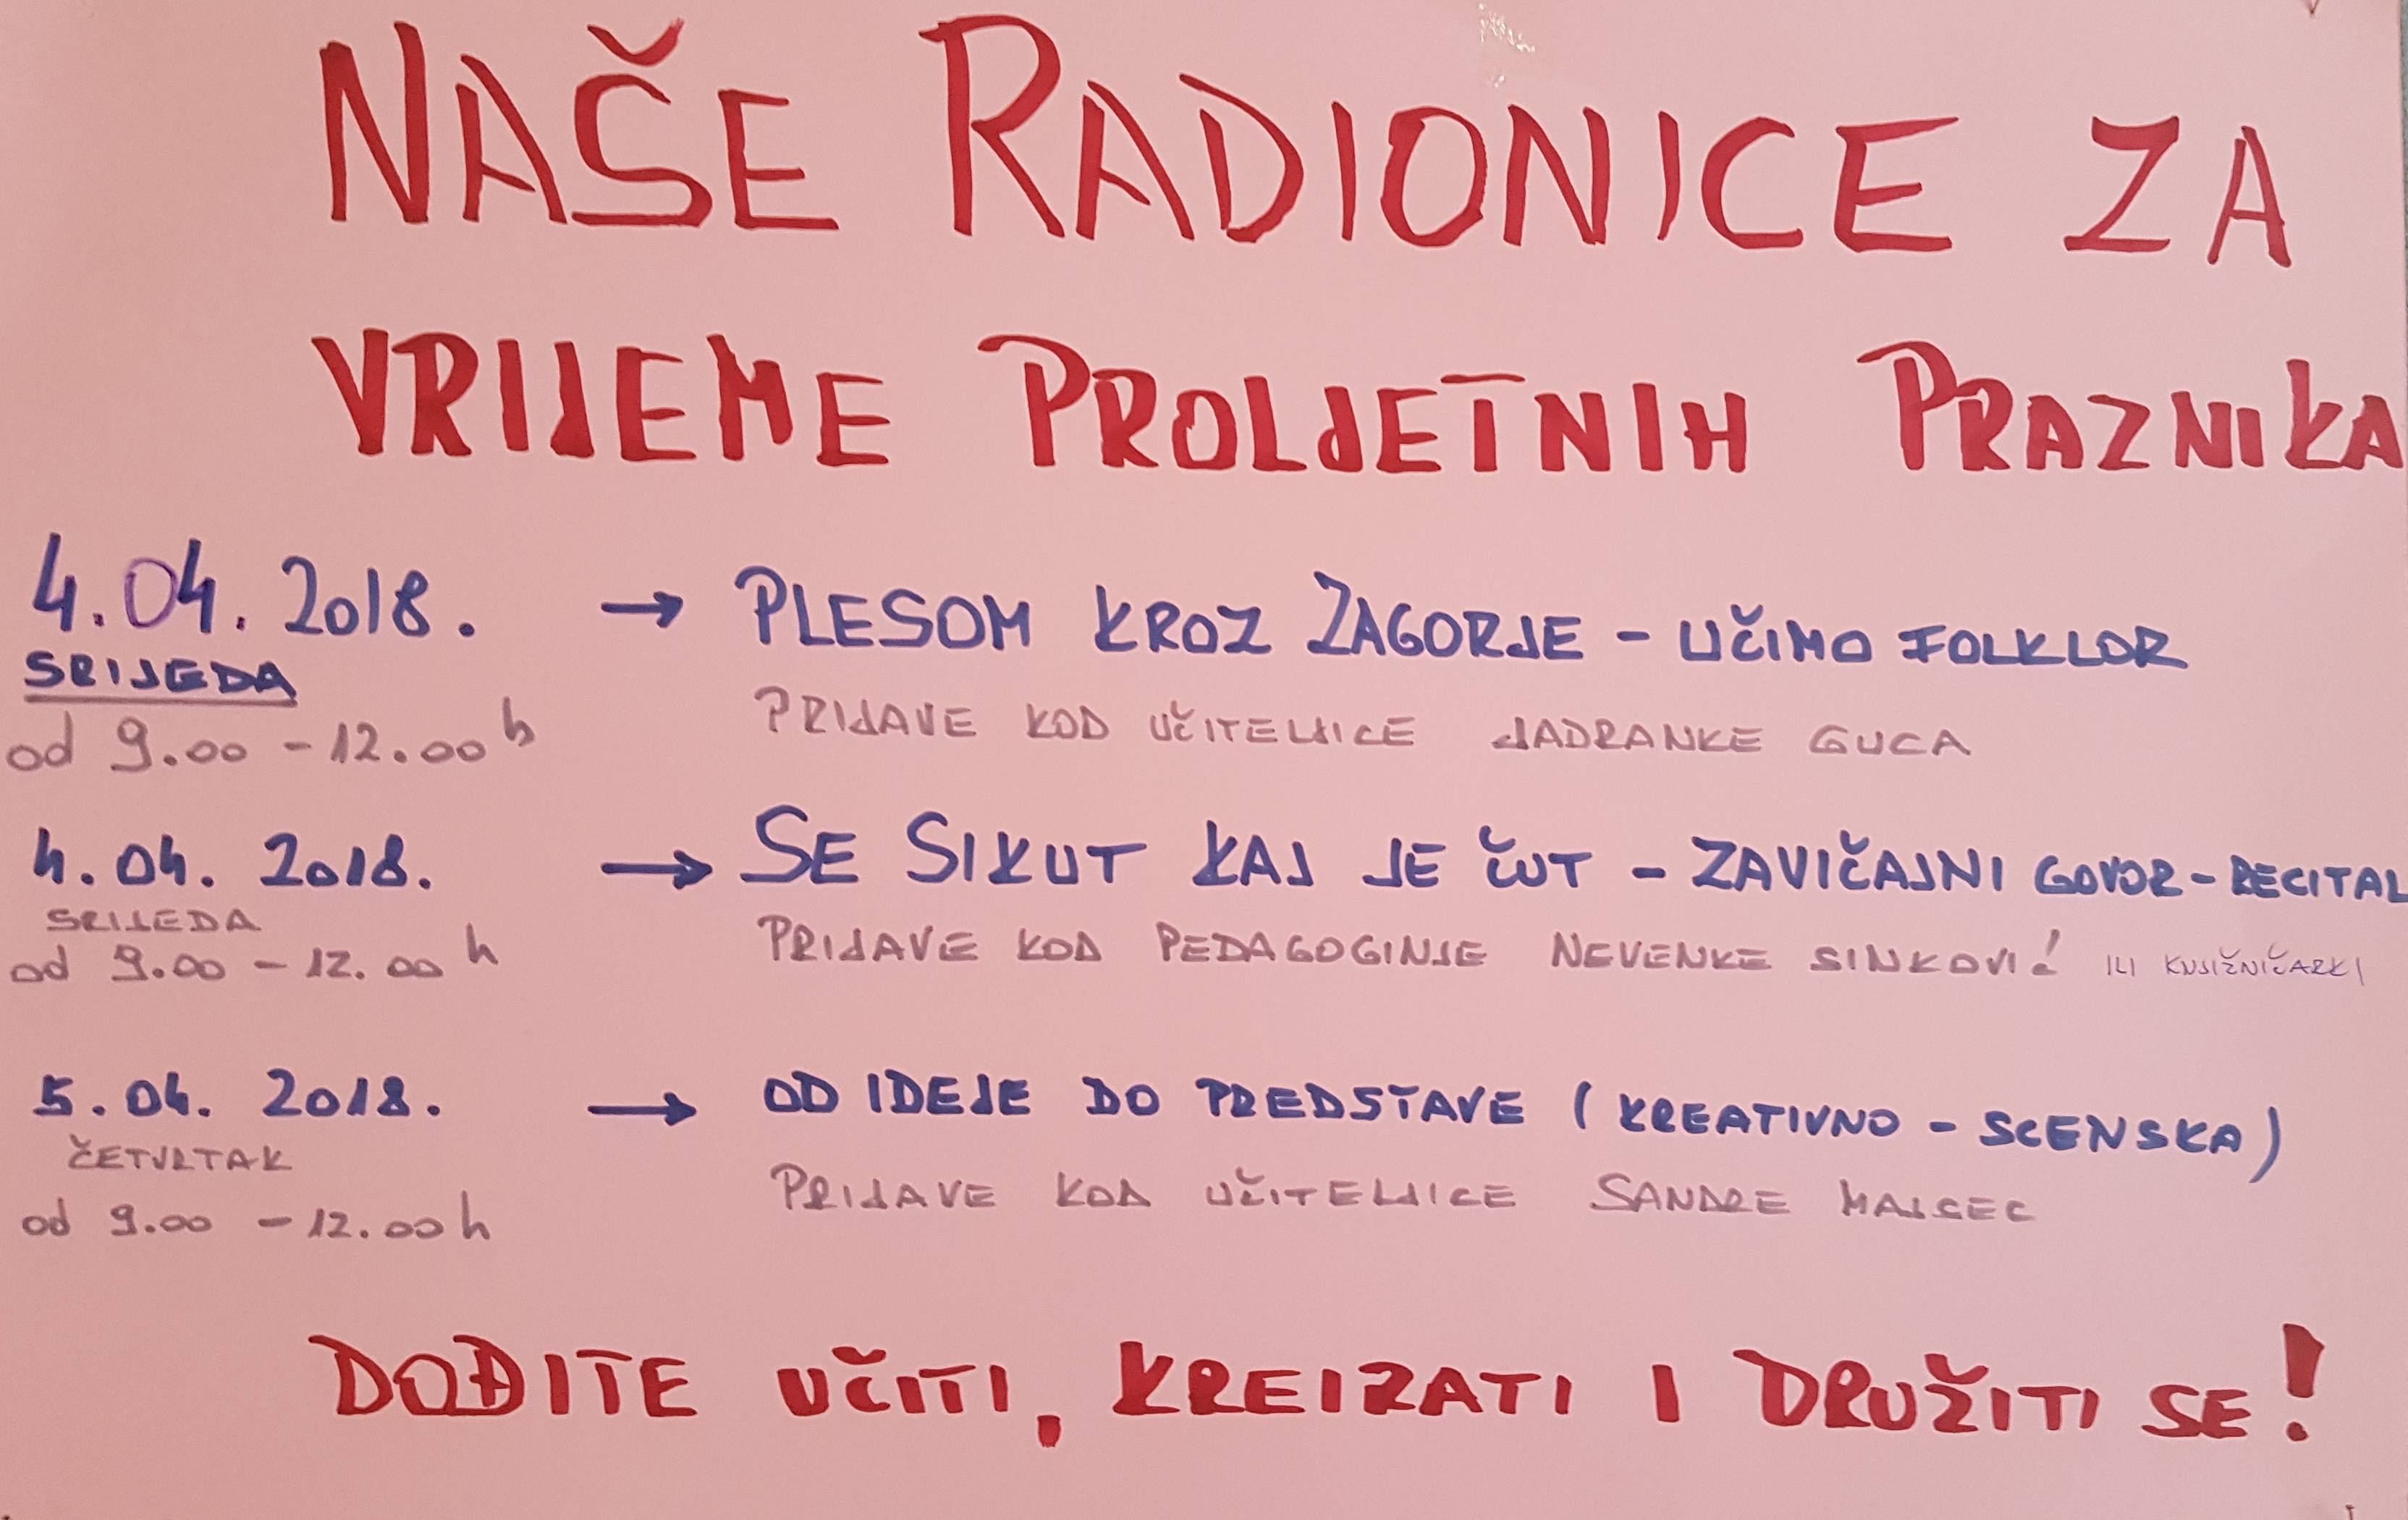 NAŠE RADIONICE ZA
VRIJEME PROLJETNIH PRAZNIKA
4.04.2018. → PLESOM KROZ ZAGORJE - UČIMO FOLKLOR
SRIJEDA
PRIJAVE KOD UČITELJICE JADRANKE GUCA
od 9.00 - 12.00 h
4.04.2018. → SE SIKUT KAJ JE ČUT - ZAVIČAJNI GOVOR - RECITAL
SRIJEDA
PRIJAVE KOD PEDAGOGINJE NEVENKE SINKOVIĆ ILI KNJIŽNIČARKI
od 9.00 - 12.00 h
5.04.2018. → OD IDEJE DO PREDSTAVE (KREATIVNO - SCENSKA)
ČETVRTAK
PRIJAVE KOD UČITELJICE SANDRE MAJSEC
od 9.00 - 12.00 h
DOĐITE UČITI, KREIRATI I DRUŽITI SE!